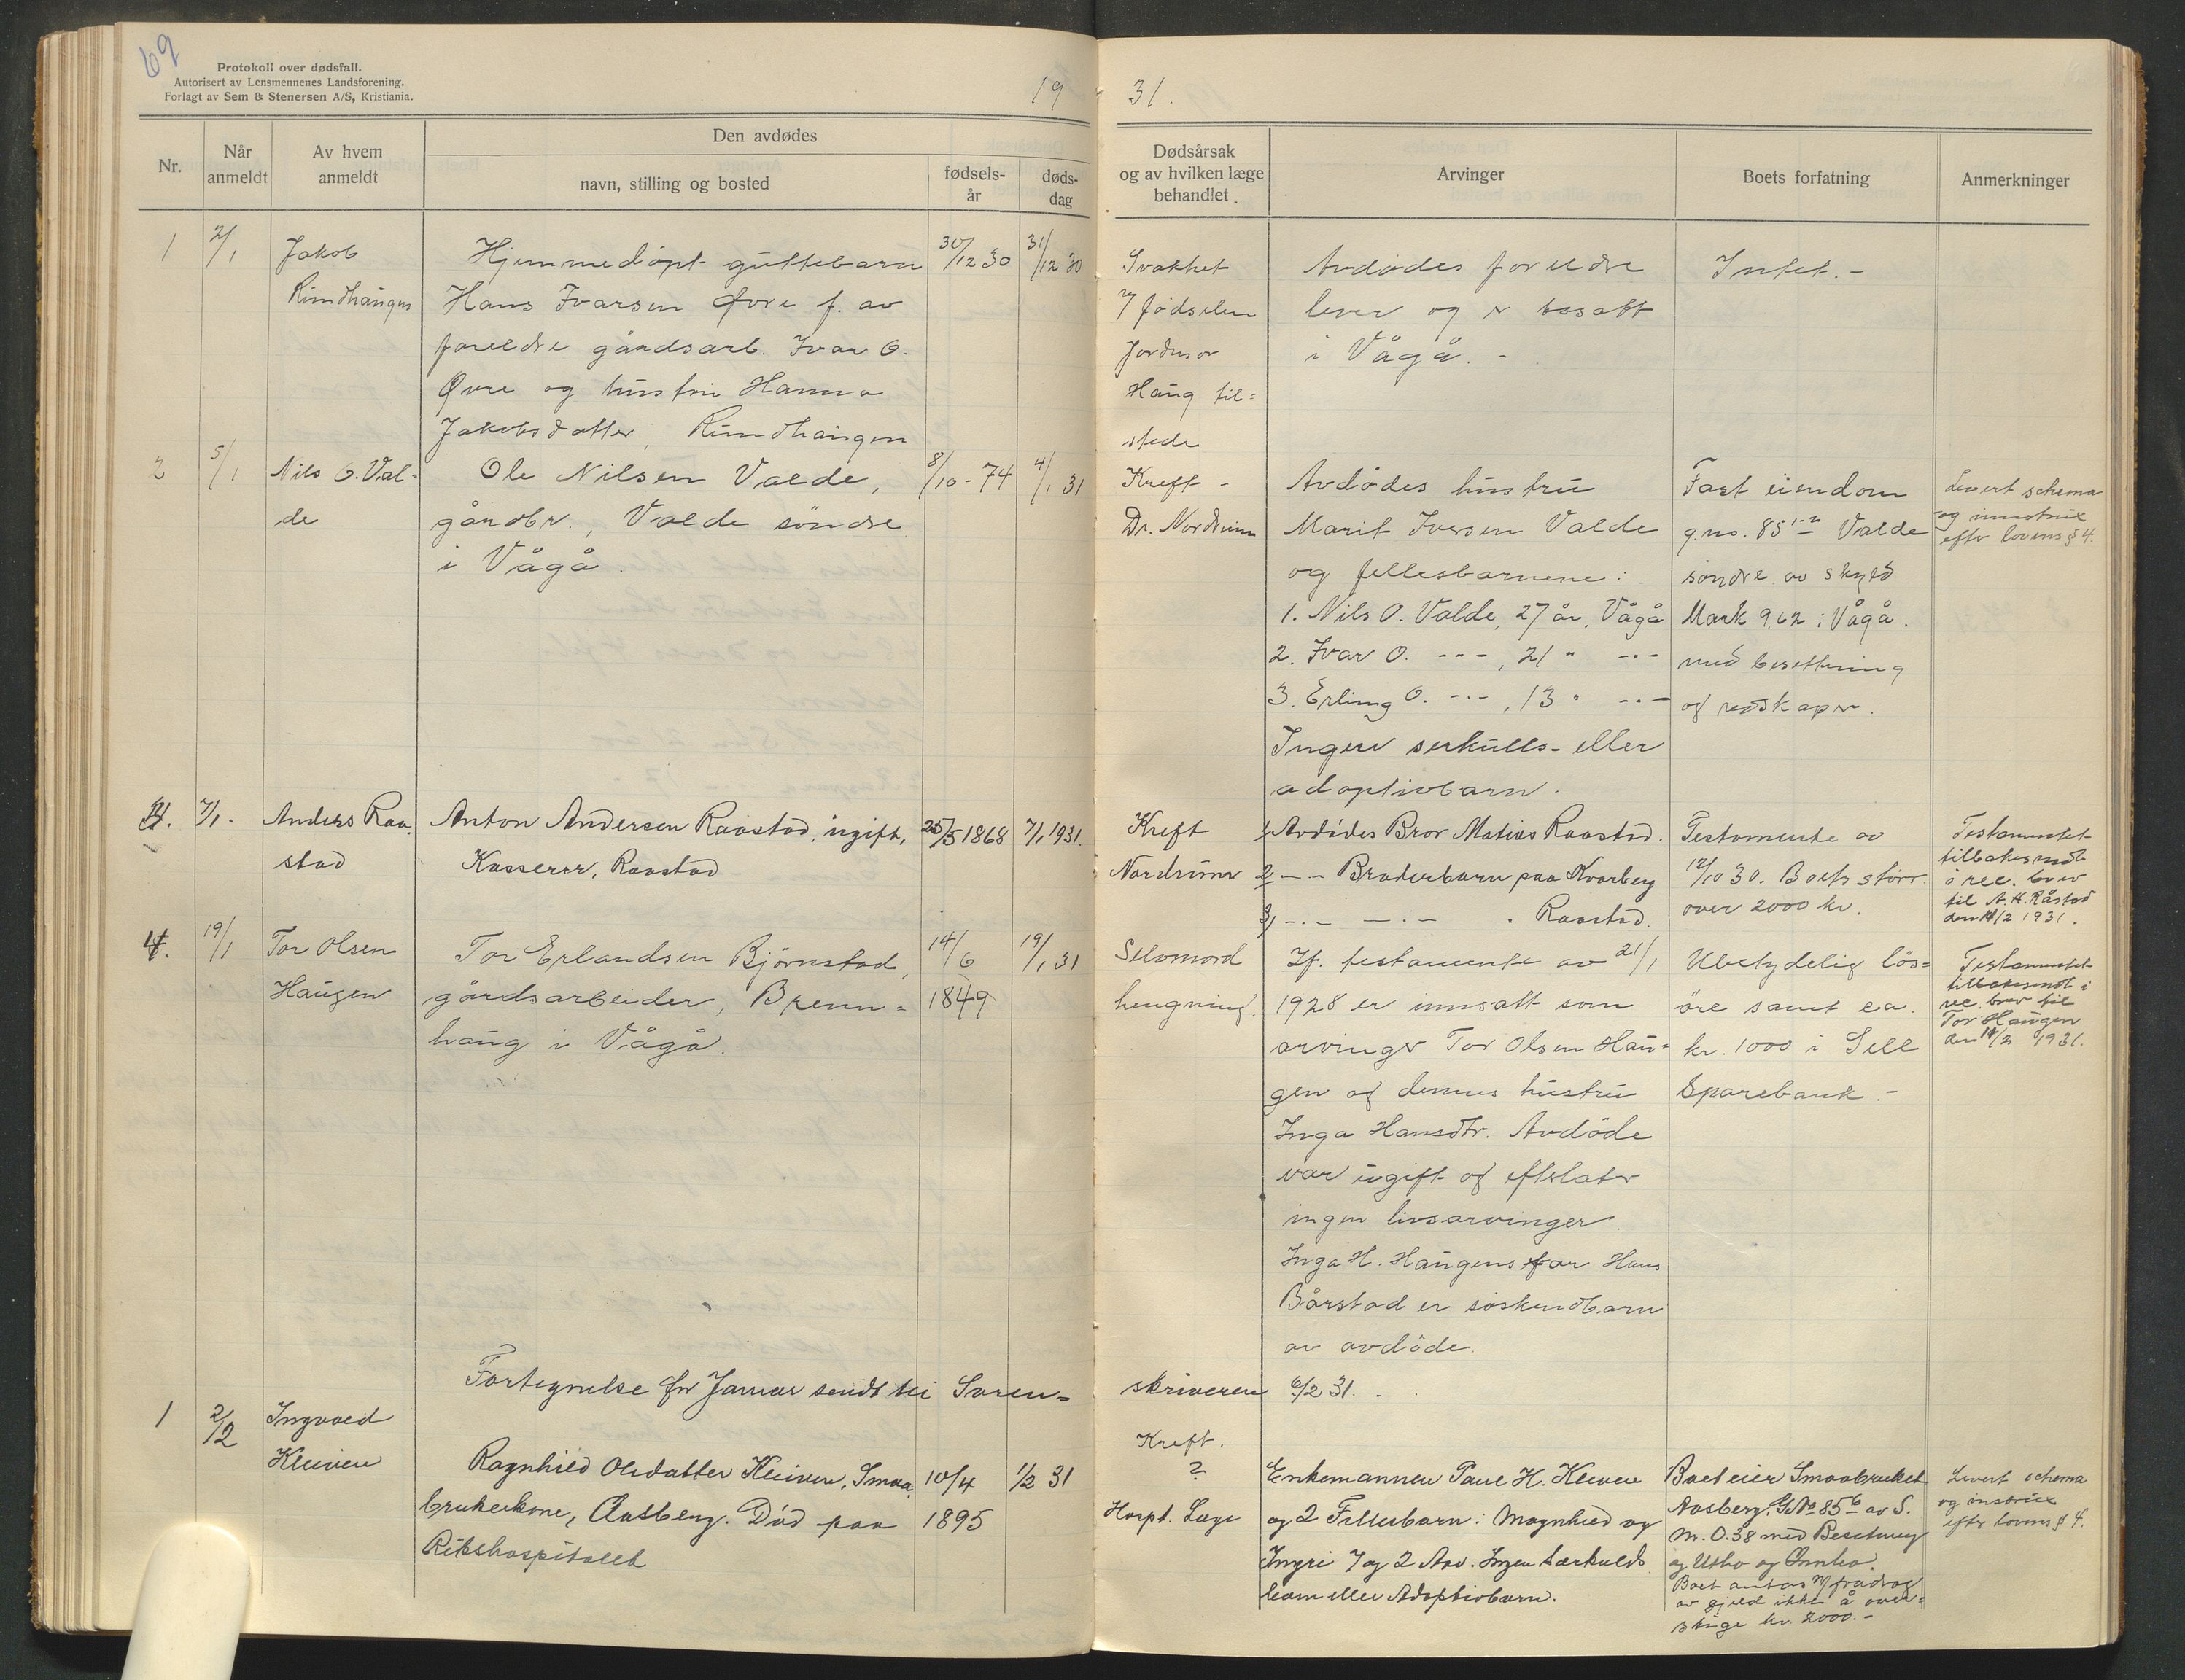 69
Protokoll over dødsfall.
Autorisert av Lensmennenes Landsforening.
Forlagt av Sem & Stenersen A/S, Kristiania.
19 31.
Nr.
Når anmeldt
Av hvem anmeldt
Den avdødes
navn, stilling og bosted
fødsels-år
døds-dag
Dødsårsak og av hvilken læge behandlet
Arvinger
Boets forfatning
Anmerkninger
1
2/1
Jakob
Rundhaugen
Hjemmedöpt guttebarn
Hans Ivarsen Øvre f. av
foreldre gårdsarb. Ivar O.
Øvre og hustru Hanna
Jakobsdatter, Rundhaugen
30/12 30
31/12 30
Svakhet
v/ födselen
Jordmor
Haug til=
stede
Avdödes foreldre
lever og er bosatt
i Vågå. -
Intet. -
2
5/1
Nils O. Val-
de
Ole Nilsen Valde,
gårdbr., Valde söndre
i Vågå.
8/10-74
4/1 31
Kreft -
Dr. Nordrum
Avdödes hustru
Marit Iversen Valde
og fellesbarnene:
1. Nils O. Valde, 27 år, Vågå
2. Ivar O. -"-, 21 " -"-
3. Erling O. -"-, 13 " -"-
Ingen serkulls- eller
adoptivbarn.
Fast eiendom
g.no. 85 1-2 Valde
söndre av skyld
Mark 9,62 i Vågå.
med besetning
og redskaper.
Levert schema
og instrux
efter lovens § 4.
3.
7/1.
Anders Raa-
stad
Anton Andersen Raastad, ugift,
Kasserer, Raastad
25/5 1868
7/1 1931.
Kreft
Nordrum
1 Avdödes Bror Matias Raastad.
2 -"- Broderbarn paa Kvarberg
3, -"- -"- " Raastad.
Testamente av
12/10 30. Boets störr.
over 2000 kr.
Testamentet
tilbakesendt
i rec. brev
til A. H. Råstad
den 11/2 1931.
4.
19/1
Tor Olsen
Haugen
Tor Erlandsen Björnstad,
gårdsarbeider, Brenn=
haug i Vågå.
14/6
1849
19/1 31
Selvmord
hengning.
If. testamente av 21/1
1928 er innsatt som
arvinger Tor Olsen Hau=
gen og dennes hustru
Inga Hansdtr. Avdöde
var ugift og efterlater
ingen livsarvinger.
Inga H. Haugens far Hans
Bårstad er söskendbarn
av avdöde.
Ubetydelig lös=
öre samt ca.
kr. 1000 i Sell
Sparebank. -
Testamentet
tilbakesendt i
rec. brev til
Tor Haugen
den 11/2 1931.
Fortegnelse for Januar sendt til Soren=
skriveren 6/2 31. -
1
2/2
Ingvald
Kleiven
Ragnhild Olsdatter Kleiven, Smaa
brukerkone, Aasberg. Död paa
Rikshospitalet
10/4
1895
1/2 31
Kreft.
?
Hospt. Læge
Enkemannen Paul H. Kleven
og 2 Fellesbarn: Magnhild og
Ingri 7 og 2 Aar. Ingen Særkulds
barn eller Adoptivbarn.
Boet eier Smaabruket
Aasberg, G.No 85 6 av S.
M. 0.38 med Besetning
og Utbo og Innbo.
Boet antas m/ fradrag
av gjeld ikke å over=
stige kr. 2000.-
Levert schema
og instrux
efter lovens § 4.